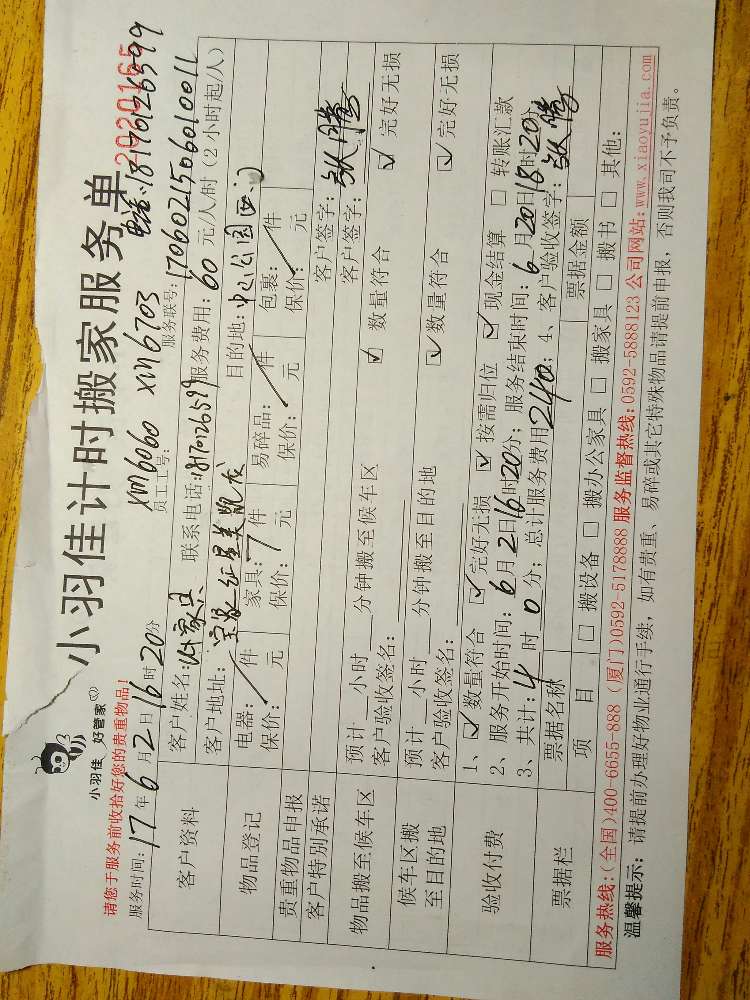 小羽佳 好管家
小羽佳计时搬家服务单
2020165
请您于服务前收拾好您的贵重物品!
电话:18170126599
xm6060 xm6703
服务时间:17年6月2日16时20分 员工工号: 服务联号:170602150601001
客户资料
客户姓名: 联系电话:18170126599 服务费用:60元/人/时(2小时起/人)
客户地址:宝龙红星美凯龙 目的地:中心公园西门
物品登记
电器:/件 家具:7件 易碎品:/件 包裹:/件
保价: 元 保价: 元 保价: 元 保价: 元
贵重物品申报
客户特别承诺 客户签字:
物品搬至候车区
预计 小时 分钟搬至候车区 客户签字:
客户验收签名: ☑数量符合 ☑完好无损
候车区搬至目的地
预计 小时 分钟搬至目的地
客户验收签名: ☑数量符合 ☑完好无损
验收付费
1、☑数量符合 ☑完好无损 ☑按需归位 ☑现金结算 □转账汇款
2、服务开始时间:6月2日16时20分;服务结束时间:6月20日18时20分
3、共计:4时0分;总计服务费用240;4、客户验收签字:
票据栏
票据名称 票据金额
项目 □搬设备 □搬办公家具 □搬家具 □搬书 □其他:
服务热线:(全国)400-6655-888 (厦门)0592-5178888 服务监督热线:0592-5888123 公司网站:www.xiaoyujia.com
温馨提示: 请提前办理好物业通行手续,如有贵重、易碎或其它特殊物品请提前申报,否则我司不予负责。